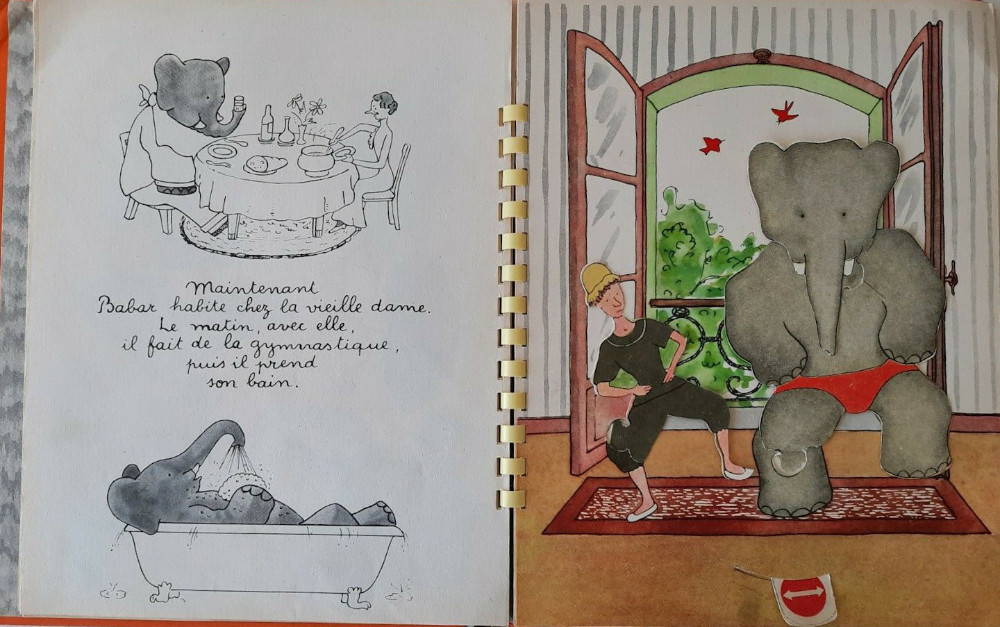 Maintenant
Babar habite chez la vieille dame.
Le matin, avec elle,
il fait de la gymnastique,
puis il prend
son bain.